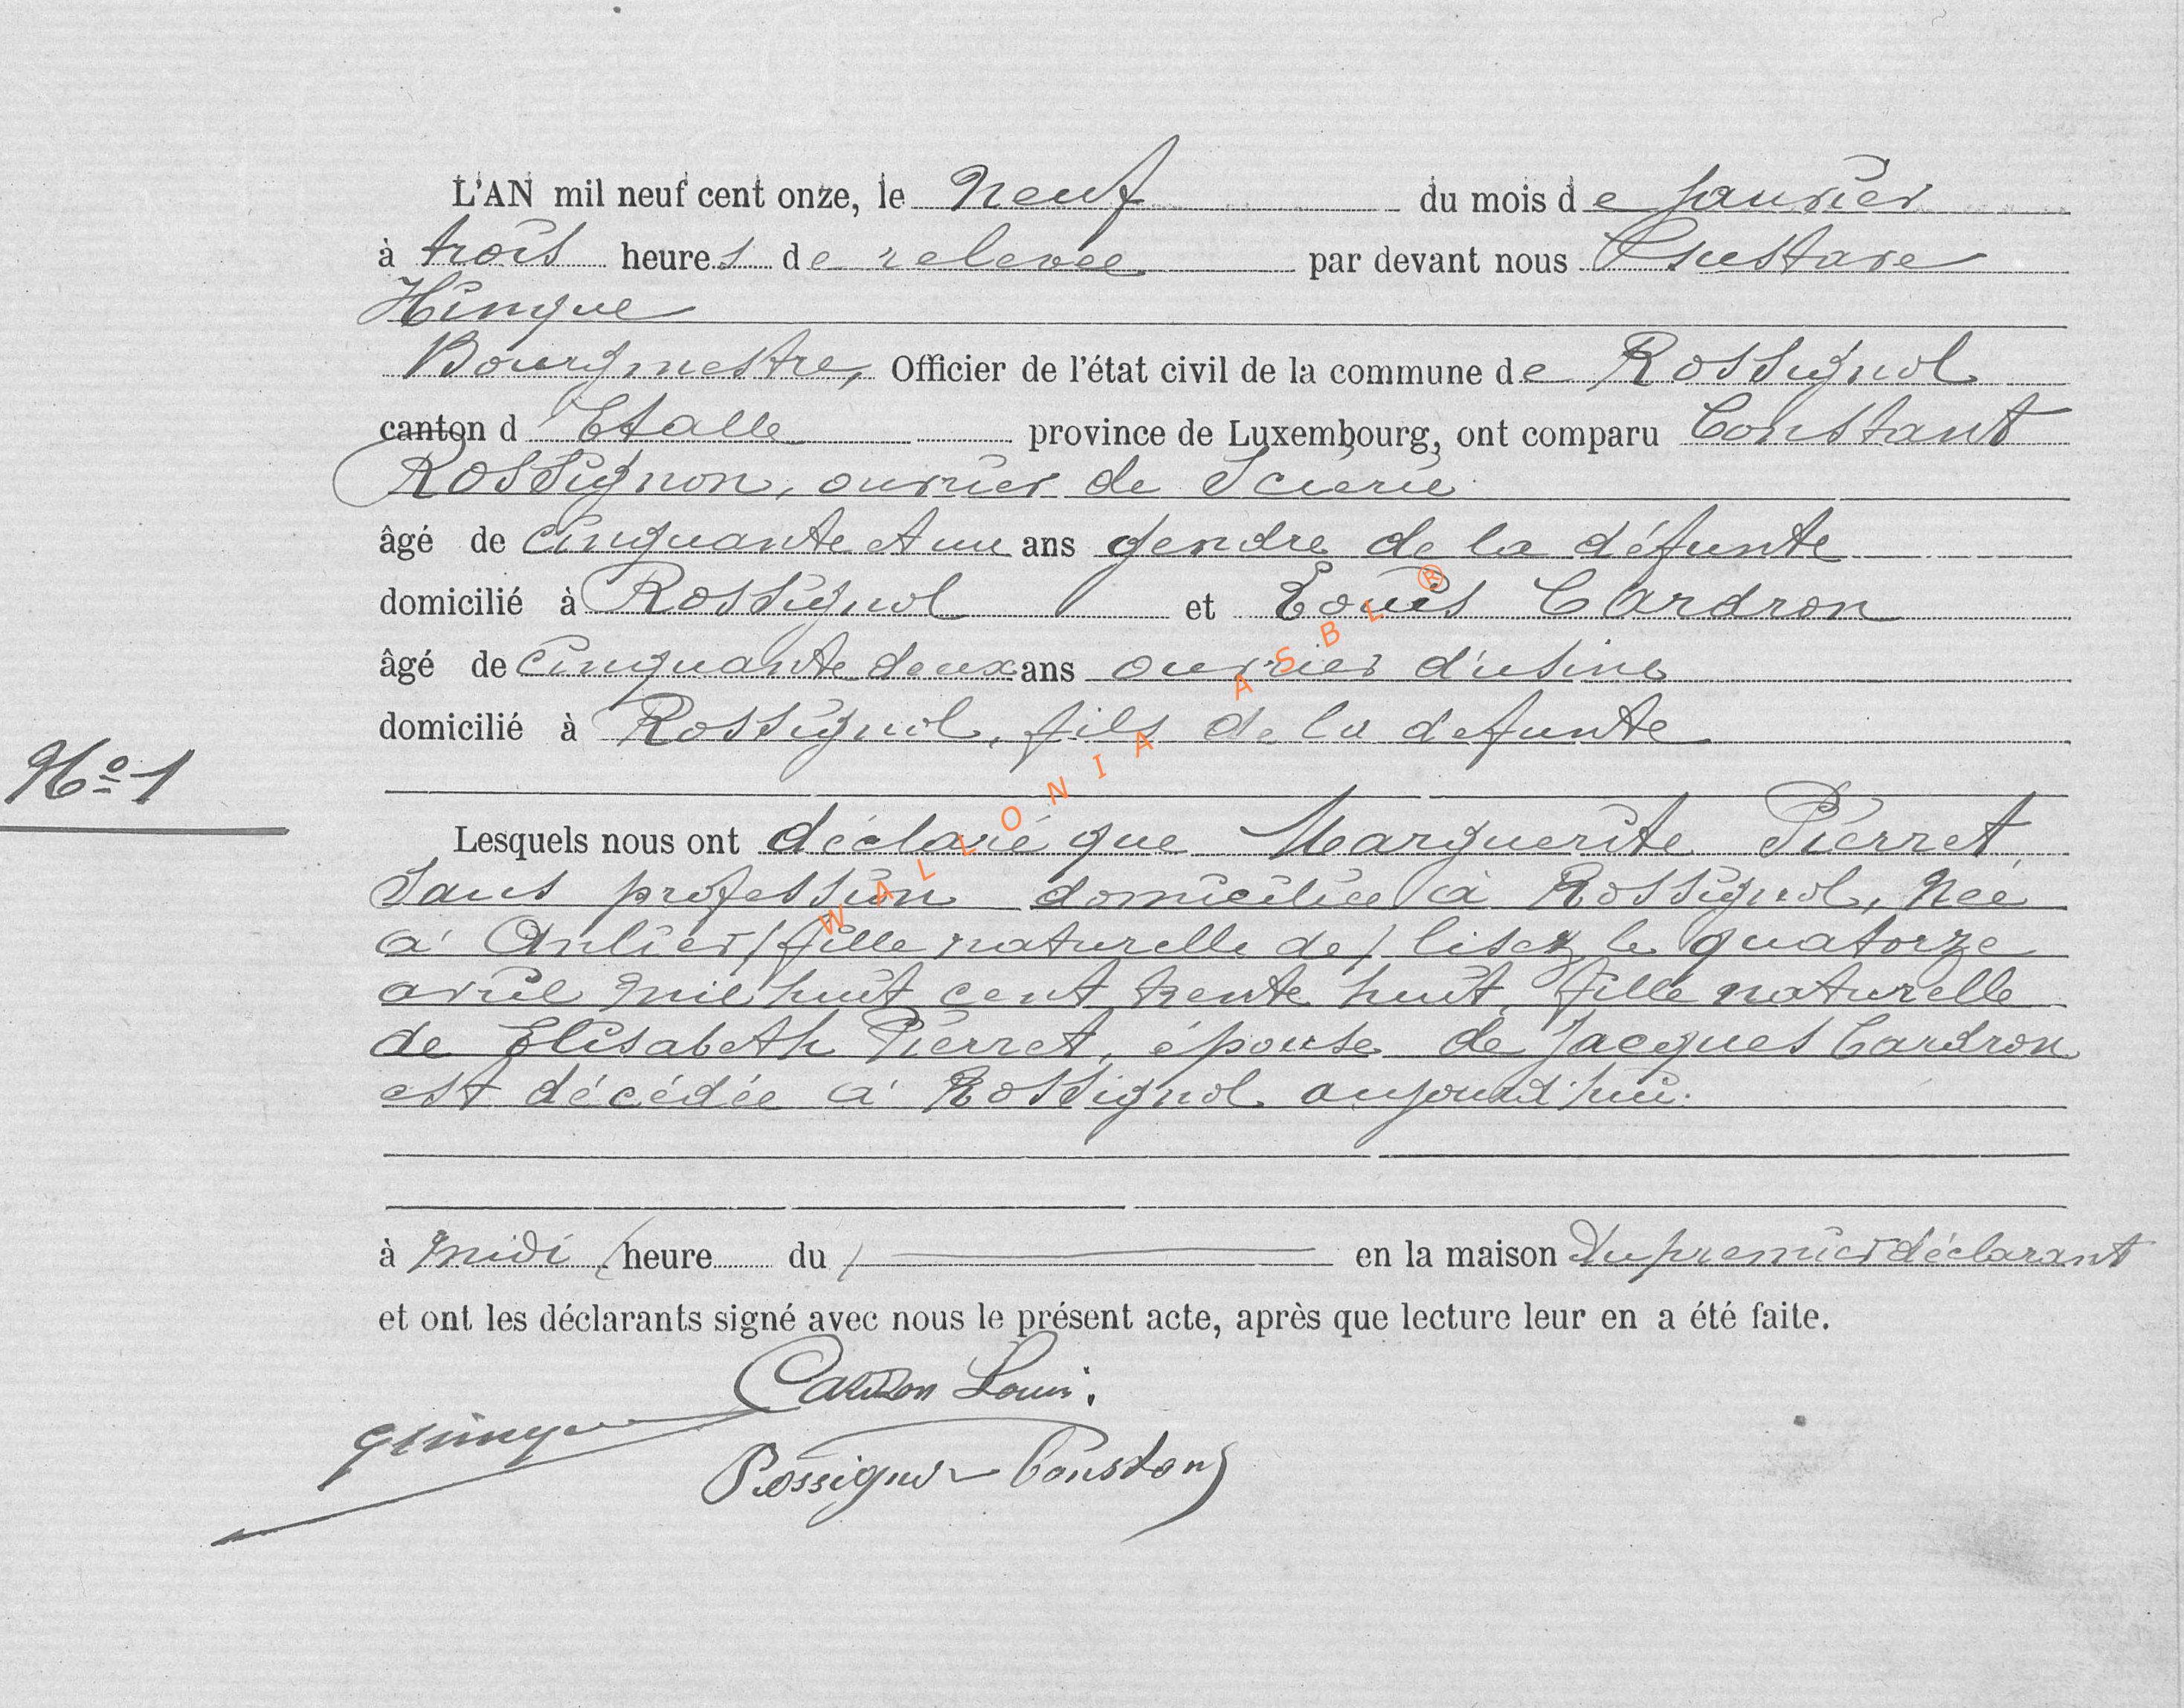 L'AN mil neuf cent onze, le neuf du mois de Janvier
à trois heures de relevée par devant nous Gustave
Hinque
Bourgmestre, Officier de l'état civil de la commune de Rossignol
canton d'Etalle province de Luxembourg, ont comparu Constant
Rossignon, ouvrier de Scierie
âgé de cinquante et un ans gendre de la défunte
domicilié à Rossignol et Louis Cardron
âgé de cinquante deux ans ouvrier d'usine
domicilié à Rossignol, fils de la defunte
No 1
Lesquels nous ont déclaré que Marguerite Pierret,
Sans profession domiciliée à Rossignol, Née
à Anlier/fille naturelle de/ lisez le quatorze
avril mil huit cent trente huit, fille naturelle
de Elisabeth Pierret, épouse de Jacques Cardron
est décédée à Rossignol aujourd'hui.
à midi / heure du / en la maison du premier déclarant
et ont les déclarants signé avec nous le présent acte, après que lecture leur en a été faite.
Cardron Louis.
GHinque
Rossignon Constant
WALLONIA ASBL ®